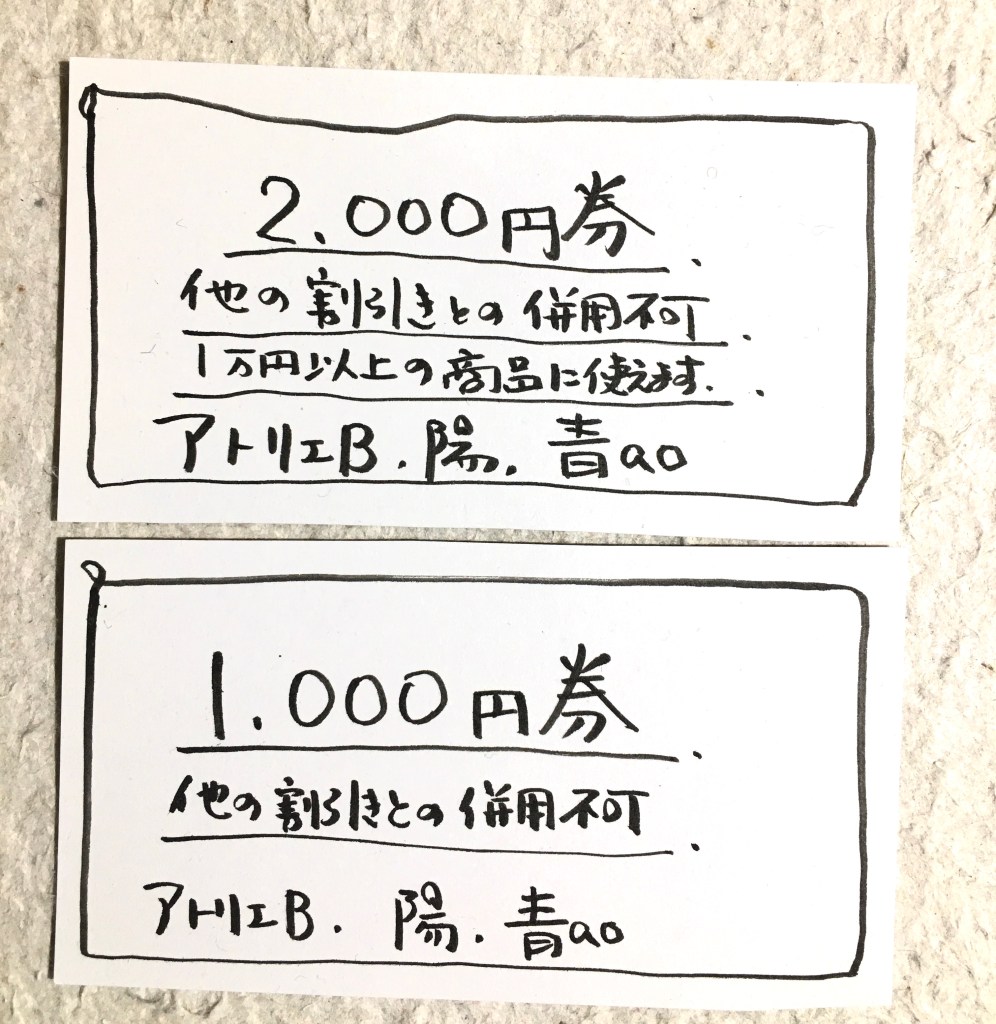 2.000円券.
他の割引きとの併用不可.
1万円以上の商品に使えます..
アトリエB.陽.青ao
1.000円券.
他の割引きとの併用不可.
アトリエB.陽.青ao